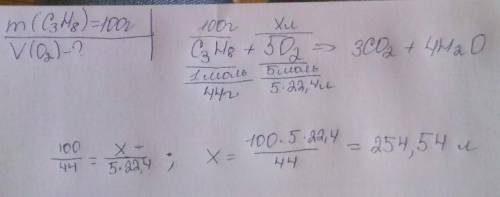 m(C₃H₈)=100г
V(O₂)-?
100г xл
C₃H₈ + 5O₂ ⇒ 3CO₂ + 4H₂O
1моль 5моль
44г 5·22,4л
100/44 = x/5·22,4 ; x = 100·5·22,4/44 = 254,54 л